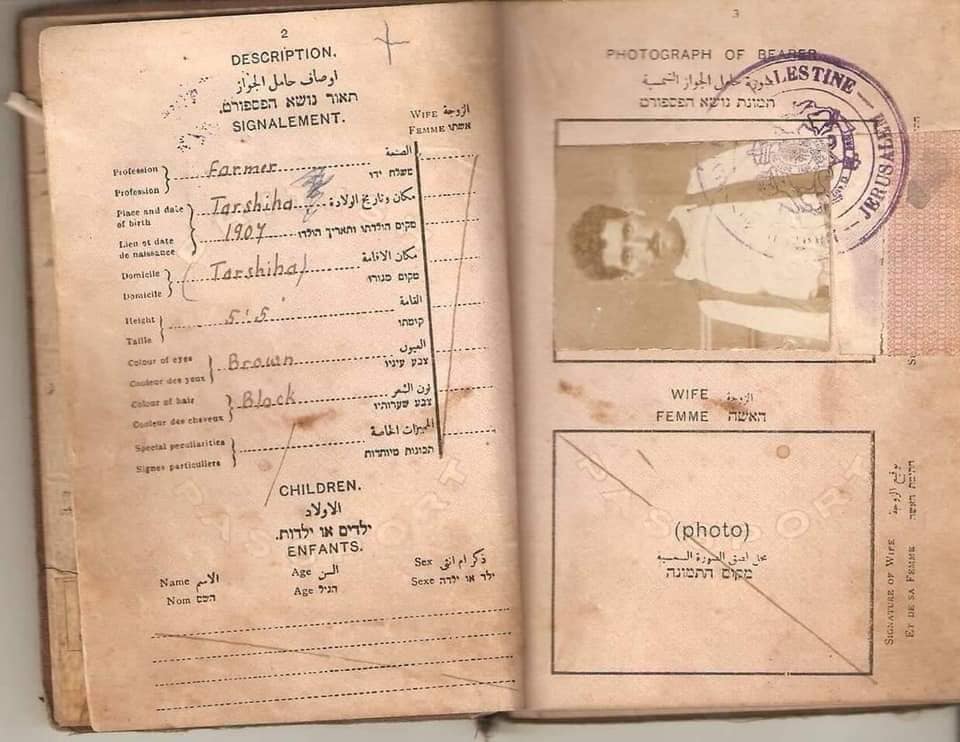 2
DESCRIPTION.
اوصاف حامل الجواز
תאור נושא הפספורט.
SIGNALEMENT.
WIFE الزوجة
FEMME אשתו
Profession
Profession
Farmer
الصنعة
משלח ידו
Place and date
of birth
Lieu et date
de naissance
Tarshiha
1907
مكان وتاريخ الولادة
מקום הולדתו ותאריך הולדו
Domicile
Domicile
Tarshiha
مكان الاقامة
מקום מגורו
Height
Taille
5'.5
القامة
קומתו
Colour of eyes
Couleur des yeux
Brown
العيون
צבע עיניו
Colour of hair
Couleur des cheveux
Black
لون الشعر
צבע שערותיו
Special peculiarities
Signes particuliers
المميزات الخاصة
תכונות מיוחדות
CHILDREN.
الاولاد
ילדים או ילדות.
ENFANTS.
Name الاسم
Nom השם
Age السن
Age הגיל
Sex ذكر ام انثى
Sexe ילד או ילדה
3
PHOTOGRAPH OF BEARER
صورة حامل الجواز الشمسية
תמונת נושא הפספורט
PALESTINE
JERUSALEM
WIFE الزوجة
FEMME האשה
PASSPORT
(photo)
محل لصق الصورة الشمسية
מקום התמונה
SIGNATURE OF WIFE توقيع الزوجة
ET DE SA FEMME חתימת האשה